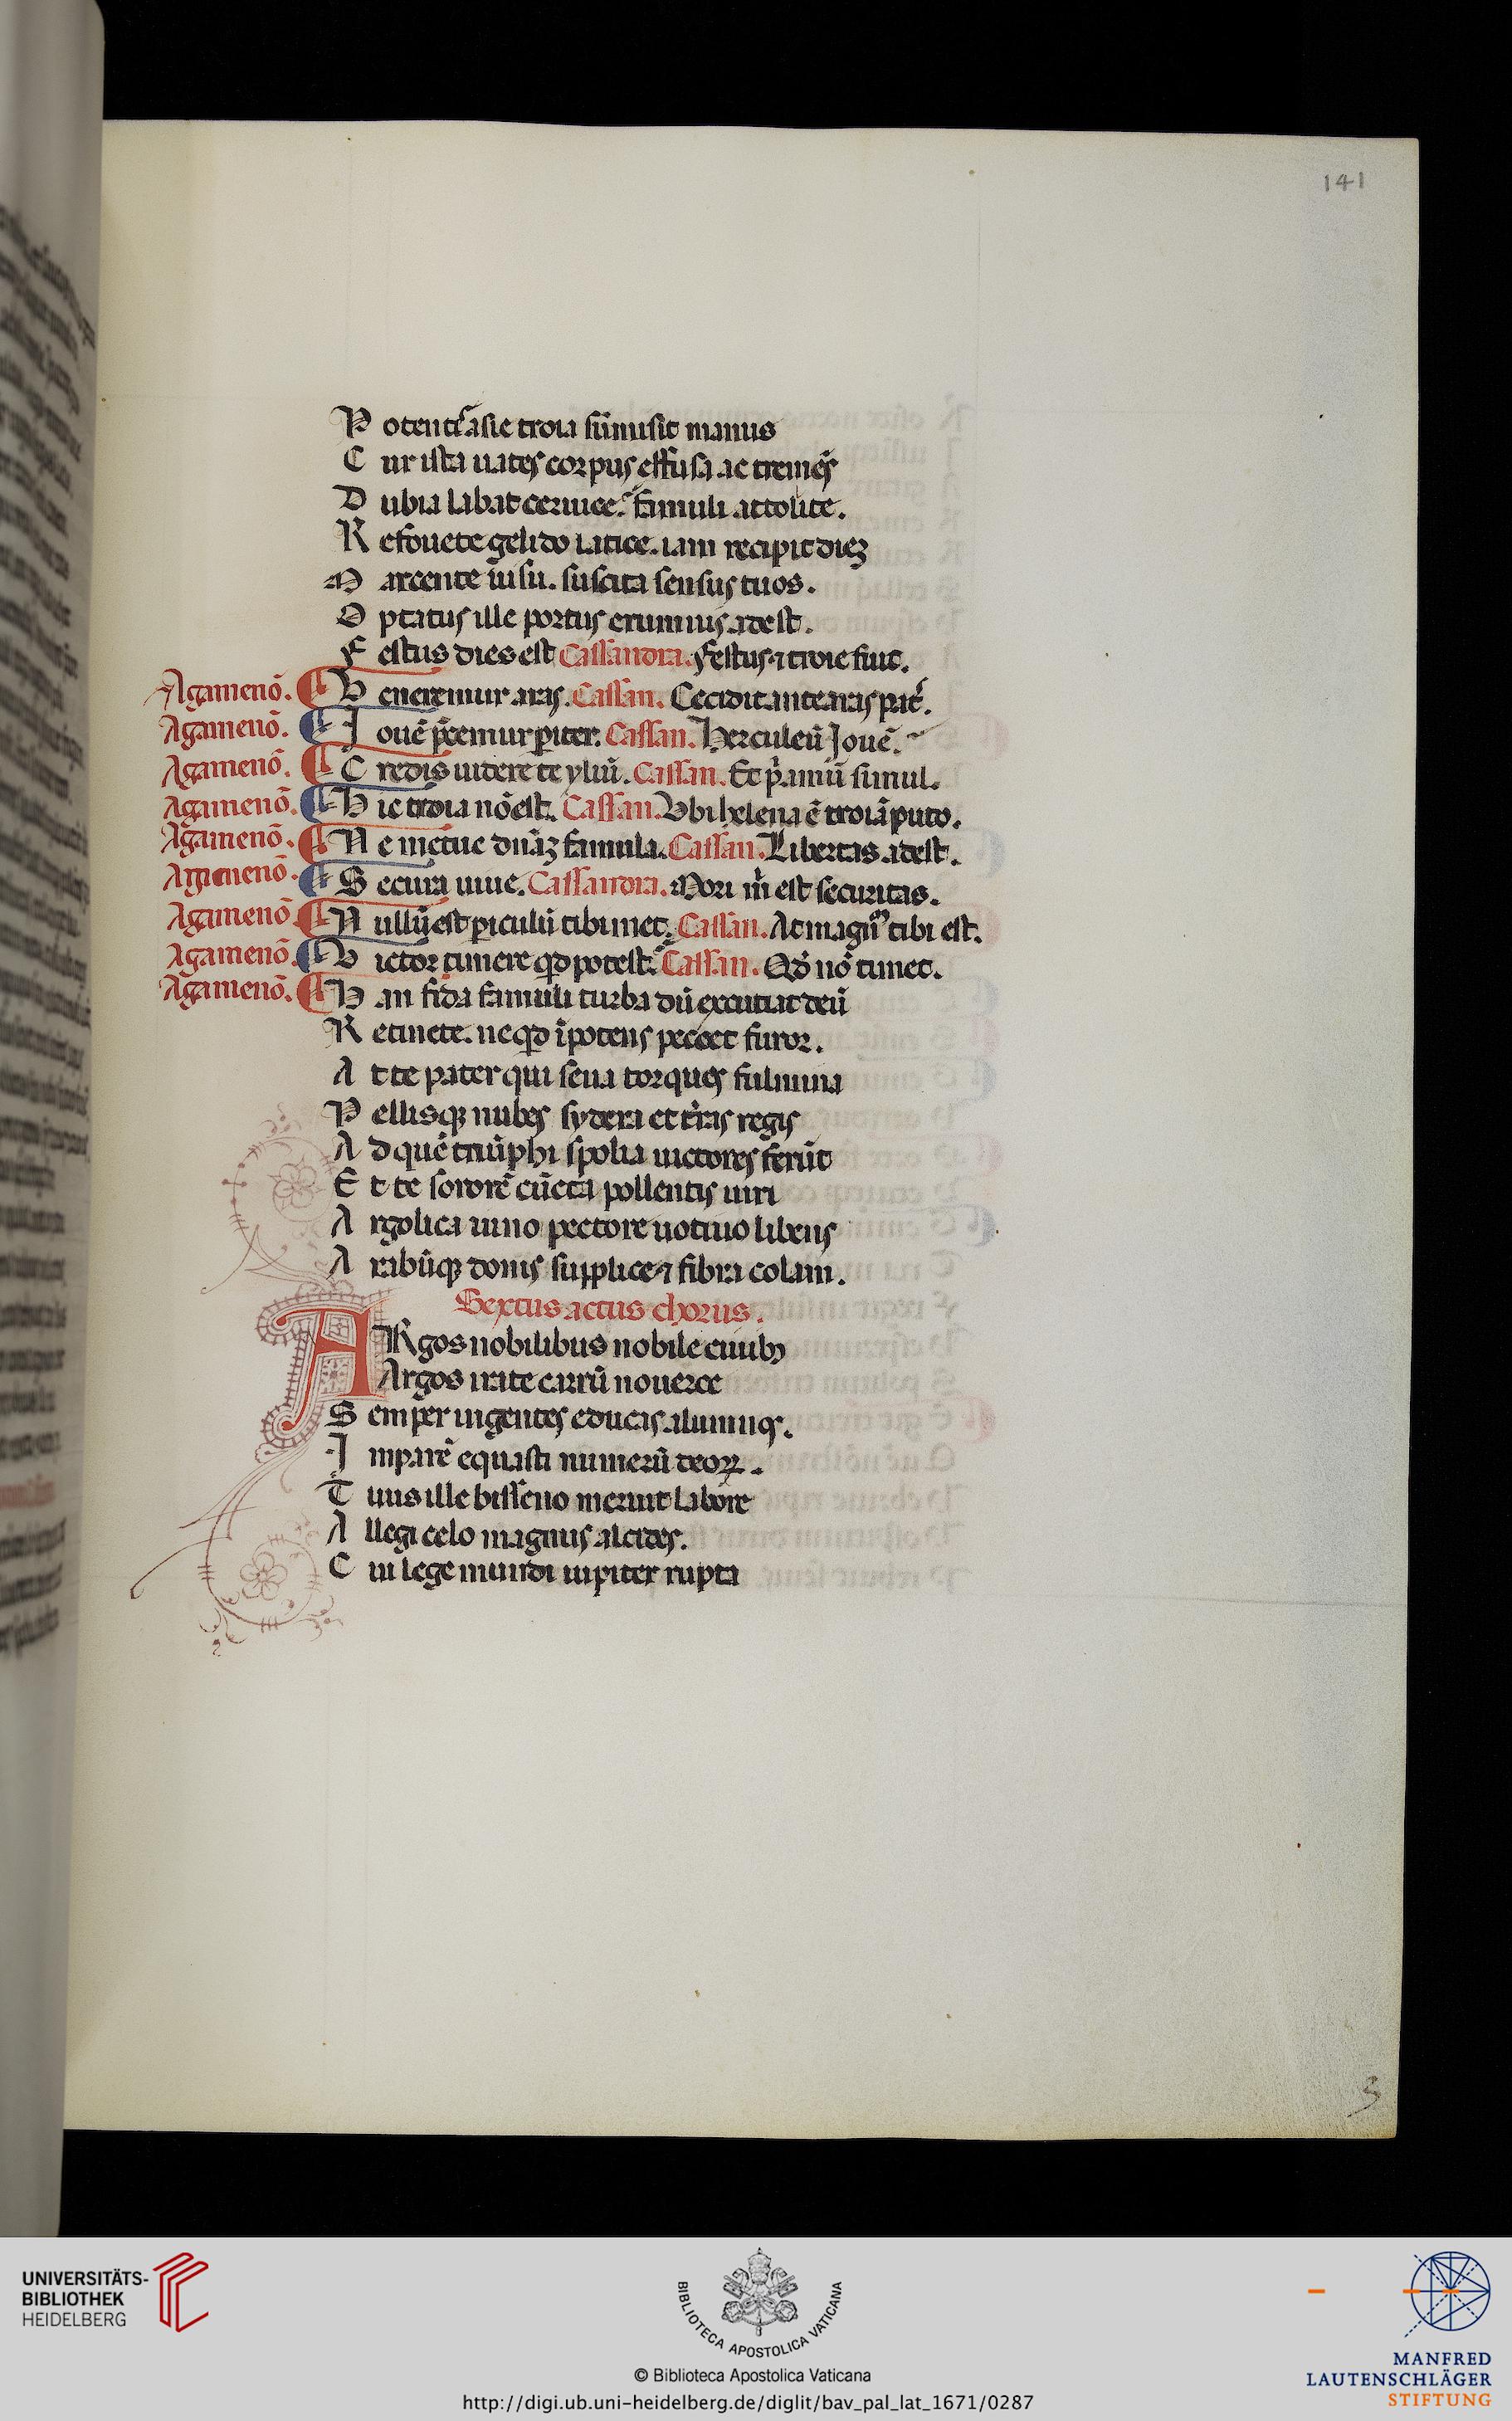 141
Potentẽ asie troia sũmisit manus
Cur ista uates corpus effusa ac tremẽs
Dubia labat ceruice. famuli attolite.
Refouete gelido latice. iam recipit dieʒ
Marcente uisu. suscita sensus tuos.
Optatus ille portus erumnis adest.
Festus dies est Cassandra. Festus ⁊ troie fuit.
Agamenõ. Veneremur aras. Cassan. Cecidit ante aras pat̃.
Agamenõ. Iouẽ p̃cemur pariter. Cassan. Herculeũ Iouẽ.
Agamenõ. Credis uidere te yliũ. Cassan. Et p̃amũ simul.
Agamenõ. Hic troia nõ est. Cassan. Vbi helena ẽ troiã puto.
Agamenõ. Ne metue dñaʒ famula. Cassan. Libertas adest.
Agamenõ. Secura uiue. Cassandra. Mori m̃ est securitas.
Agamenõ. Nullũ est piculũ tibimet. Cassan. At magñ tibi est.
Agamenõ. Victor timere qd potest. Cassan. Qd nõ timet.
Agamenõ. Han fida famuli turba dũ excutiat deũ
Retinete. ne qd ĩpotens peccet furor.
At te pater qui seua torques fulmina
Pellisqʒ nubes sydera et t̃ras regis
Ad quẽ triũphi spolia uictores ferũt
Et te sororẽ cũcta pollentis uiri
Argolica iuno pectore uotiuo libens
Arabũqʒ donis supplice ⁊ fibra colam.
Sextus actus chorus.
ARgos nobilibus nobile ciuibꝫ
Argos irate carrũ nouerce
Semper ingentes educas alumnꝰ.
Imparẽ equasti numerũ deoꝝ.
Tuus ille bisseno meruit labore
Allegi celo magnus alcides.
Cui lege mundi iupiter rupta
3
UNIVERSITÄTS-
BIBLIOTHEK
HEIDELBERG
BIBLIOTECA APOSTOLICA VATICANA
© Biblioteca Apostolica Vaticana
http://digi.ub.uni-heidelberg.de/diglit/bav_pal_lat_1671/0287
MANFRED
LAUTENSCHLÄGER
STIFTUNG